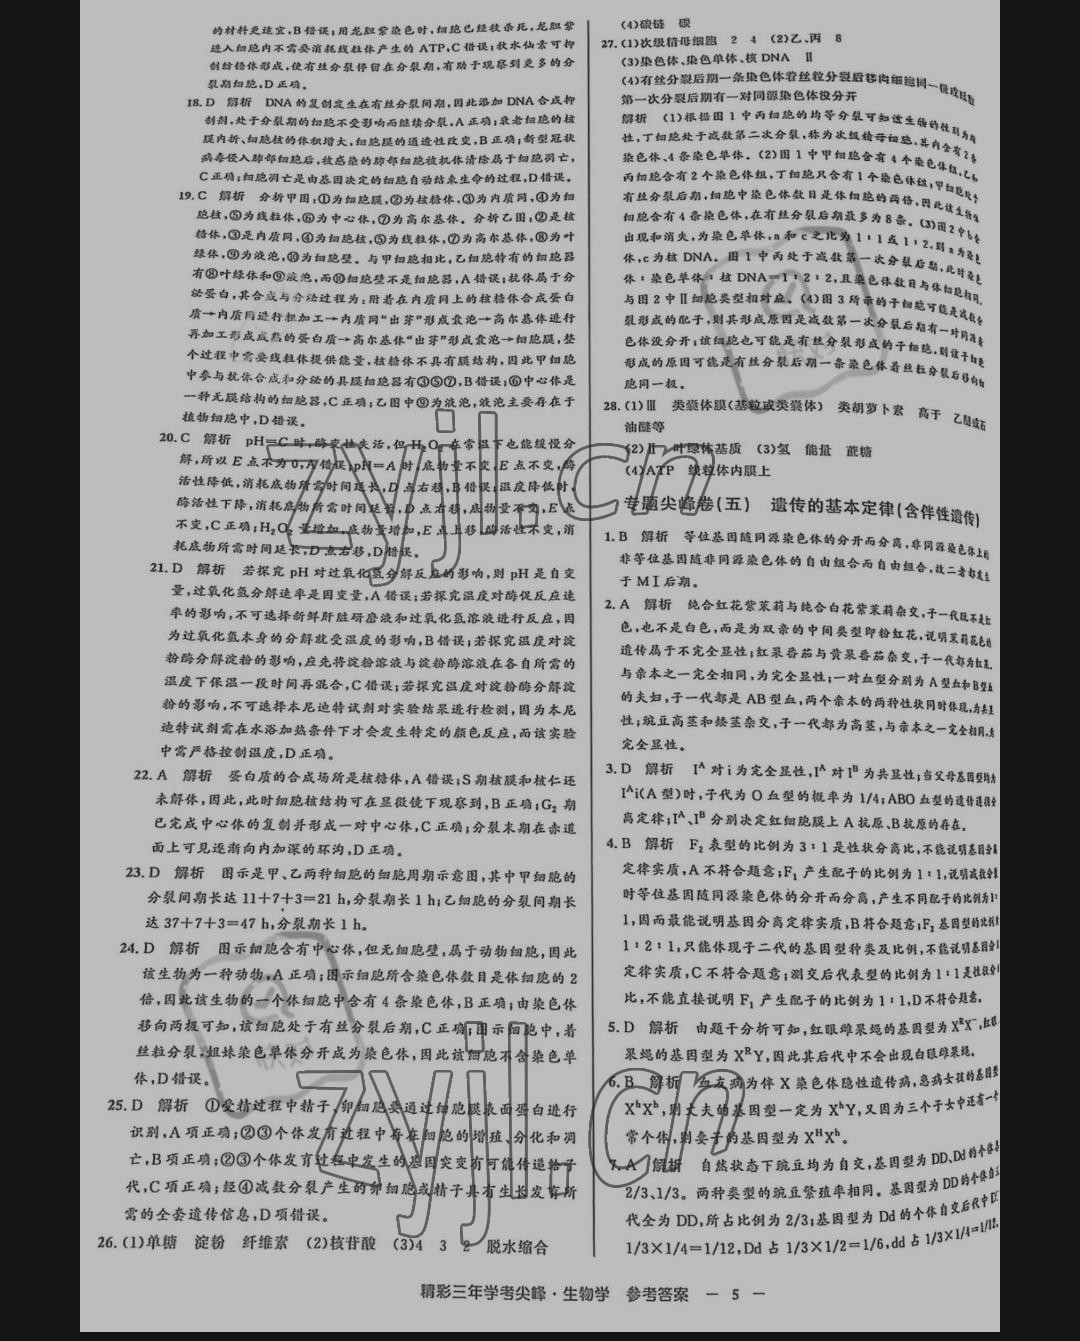 的材料更适宜,B错误;用龙胆紫染色时,细胞已经被杀死,龙胆紫
进入细胞内不需要消耗线粒体产生的ATP,C错误;秋水仙素可抑
制纺锤体形成,使有丝分裂停留在分裂期,有助于观察到更多的分
裂期细胞,D正确。
18. D 解析 DNA的复制发生在有丝分裂间期,因此添加DNA合成抑
制剂,处于分裂期的细胞不受影响而继续分裂,A正确;衰老细胞的核
膜内折、细胞核的体积增大,细胞膜的通透性改变,B正确;新型冠状
病毒侵入肺部细胞后,被感染的肺部细胞被机体清除属于细胞凋亡,
C正确;细胞凋亡是由基因决定的细胞自动结束生命的过程,D错误。
19. C 解析 分析甲图:①为细胞膜,②为核糖体,③为内质网,④为细
胞核,⑤为线粒体,⑥为中心体,⑦为高尔基体。分析乙图:②是核
糖体,③是内质网,④为细胞核,⑤为线粒体,⑦为高尔基体,⑧为叶
绿体,⑨为液泡,⑩为细胞壁。与甲细胞相比,乙细胞特有的细胞器
有⑧叶绿体和⑨液泡,而⑩细胞壁不是细胞器,A错误;抗体属于分
泌蛋白,其合成与分泌过程为:附着在内质网上的核糖体合成蛋白
质→内质网进行粗加工→内质网“出芽”形成囊泡→高尔基体进行
再加工形成成熟的蛋白质→高尔基体“出芽”形成囊泡→细胞膜,整
个过程中需要线粒体提供能量,核糖体不具有膜结构,因此甲细胞
中参与抗体合成和分泌的具膜细胞器有③⑤⑦,B错误;⑥中心体是
一种无膜结构的细胞器,C正确;乙图中⑨为液泡,液泡主要存在于
植物细胞中,D错误。
20. C 解析 pH=C时,酶变性失活,但H₂O₂在常温下也能缓慢分
解,所以E点不为0,A错误;pH=A时,底物量不变,E点不变,酶
活性降低,消耗底物所需时间延长,D点右移,B错误;温度降低时,
酶活性下降,消耗底物所需时间延长,D点右移,底物量不变,E点
不变,C正确;H₂O₂量增加,底物量增加,E点上移,酶活性不变,消
耗底物所需时间延长,D点右移,D错误。
21. D 解析 若探究pH对过氧化氢分解反应的影响,则pH是自变
量,过氧化氢分解速率是因变量,A错误;若探究温度对酶促反应速
率的影响,不可选择新鲜肝脏研磨液和过氧化氢溶液进行反应,因
为过氧化氢本身的分解就受温度的影响,B错误;若探究温度对淀
粉酶分解淀粉的影响,应先将淀粉溶液与淀粉酶溶液在各自所需的
温度下保温一段时间再混合,C错误;若探究温度对淀粉酶分解淀
粉的影响,不可选择本尼迪特试剂对实验结果进行检测,因为本尼
迪特试剂需在水浴加热条件下才会发生特定的颜色反应,而该实验
中需严格控制温度,D正确。
22. A 解析 蛋白质的合成场所是核糖体,A错误;S期核膜和核仁还
未解体,因此,此时细胞核结构可在显微镜下观察到,B正确;G₂期
已完成中心体的复制并形成一对中心体,C正确;分裂末期在赤道
面上可见逐渐向内加深的环沟,D正确。
23. D 解析 图示是甲、乙两种细胞的细胞周期示意图,其中甲细胞的
分裂间期长达11+7+3=21 h,分裂期长1 h;乙细胞的分裂间期长
达37+7+3=47 h,分裂期长1 h。
24. D 解析 图示细胞含有中心体,但无细胞壁,属于动物细胞,因此
该生物为一种动物,A正确;图示细胞所含染色体数目是体细胞的2
倍,因此该生物的一个体细胞中含有4条染色体,B正确;由染色体
移向两极可知,该细胞处于有丝分裂后期,C正确;图示细胞中,着
丝粒分裂,姐妹染色单体分开成为染色体,因此该细胞不含染色单
体,D错误。
25. D 解析 ①受精过程中精子、卵细胞要通过细胞膜表面蛋白进行
识别,A项正确;②③个体发育过程中存在细胞的增殖、分化和凋
亡,B项正确;②③个体发育过程中发生的基因突变有可能传递给子
代,C项正确;经④减数分裂产生的卵细胞或精子具有生长发育所
需的全套遗传信息,D项错误。
26. (1)单糖 淀粉 纤维素 (2)核苷酸 (3)4 3 2 脱水缩合
(4)碳链 碳
27. (1)次级精母细胞 2 4 (2)乙、丙 8
(3)染色体、染色单体、核DNA Ⅱ
(4)有丝分裂后期一条染色体着丝粒分裂后移向细胞同一极或减数
第一次分裂后期有一对同源染色体没分开
解析 (1)根据图1中丙细胞的均等分裂可知该生物的性别为雄
性,丁细胞处于减数第二次分裂,称为次级精母细胞,其内含有2条
染色体、4条染色单体。(2)图1中甲细胞含有4个染色体组,乙和
丙细胞含有2个染色体组,丁细胞只含有1个染色体组;甲细胞处于
有丝分裂后期,细胞中染色体数目是体细胞的两倍,因此该生物体
细胞含有4条染色体,在有丝分裂后期最多为8条。(3)图2中b会
出现和消失,为染色单体,a和c之比为1∶1或1∶2,则a为染色
体,c为核DNA。图1中丙处于减数第一次分裂后期,此时染色
体∶染色单体∶核DNA=1∶2∶2,且染色体数目与体细胞相同,
与图2中Ⅱ细胞类型相对应。(4)图3所示的子细胞可能是减数分
裂形成的配子,则其形成原因是减数第一次分裂后期有一对同源染
色体没分开;该细胞也可能是有丝分裂形成的子细胞,则该子细胞
形成的原因可能是有丝分裂后期一条染色体着丝粒分裂后移向细
胞同一极。
28. (1)Ⅲ 类囊体膜(基粒或类囊体) 类胡萝卜素 高于 乙醚或石
油醚等
(2)Ⅱ 叶绿体基质 (3)氢 能量 蔗糖
(4)ATP 线粒体内膜上
专题尖峰卷(五) 遗传的基本定律(含伴性遗传)
1. B 解析 等位基因随同源染色体的分开而分离,非同源染色体上的
非等位基因随非同源染色体的自由组合而自由组合,故二者都发生
于MⅠ后期。
2. A 解析 纯合红花紫茉莉与纯合白花紫茉莉杂交,子一代既不是红
色,也不是白色,而是为双亲的中间类型即粉红花,说明茉莉花色的
遗传属于不完全显性;红果番茄与黄果番茄杂交,子一代都为红果,
与亲本之一完全相同,为完全显性;一对血型分别为A型血和B型血
的夫妇,子一代都是AB型血,两个亲本的两种性状同时体现,为共显
性;豌豆高茎和矮茎杂交,子一代都为高茎,与亲本之一完全相同,为
完全显性。
3. D 解析 Iᴬ对i为完全显性,Iᴬ对Iᴮ为共显性;当父母基因型均为
Iᴬi(A型)时,子代为O血型的概率为1/4;ABO血型的遗传遵循分
离定律;Iᴬ、Iᴮ分别决定红细胞膜上A抗原、B抗原的存在。
4. B 解析 F₂表型的比例为3∶1是性状分离比,不能说明基因分离
定律实质,A不符合题意;F₁产生配子的比例为1∶1,说明减数分裂
时等位基因随同源染色体的分开而分离,产生不同配子的比例为1∶
1,因而最能说明基因分离定律实质,B符合题意;F₂基因型的比例为
1∶2∶1,只能体现子二代的基因型种类及比例,不能说明基因分离
定律实质,C不符合题意;测交后代表型的比例为1∶1是性状分离
比,不能直接说明F₁产生配子的比例为1∶1,D不符合题意。
5. D 解析 由题干分析可知,红眼雌果蝇的基因型为XᴿX⁻,红眼雄
果蝇的基因型为XᴿY,因此其后代中不会出现白眼雌果蝇。
6. B 解析 血友病为伴X染色体隐性遗传病,患病女孩的基因型
XʰXʰ,则丈夫的基因型一定为XʰY,又因为三个子女中还有一个
常个体,则妻子的基因型为XᴴXʰ。
7. A 解析 自然状态下豌豆均为自交,基因型为DD、Dd的个体各
2/3、1/3。两种类型的豌豆繁殖率相同。基因型为DD的个体自交
代全为DD,所占比例为2/3;基因型为Dd的个体自交后代中DD
1/3×1/4=1/12,Dd占1/3×1/2=1/6,dd占1/3×1/4=1/12,
精彩三年学考尖峰·生物学 参考答案 — 5 —
zyjl.cn
zyjl.cn
快对
快对